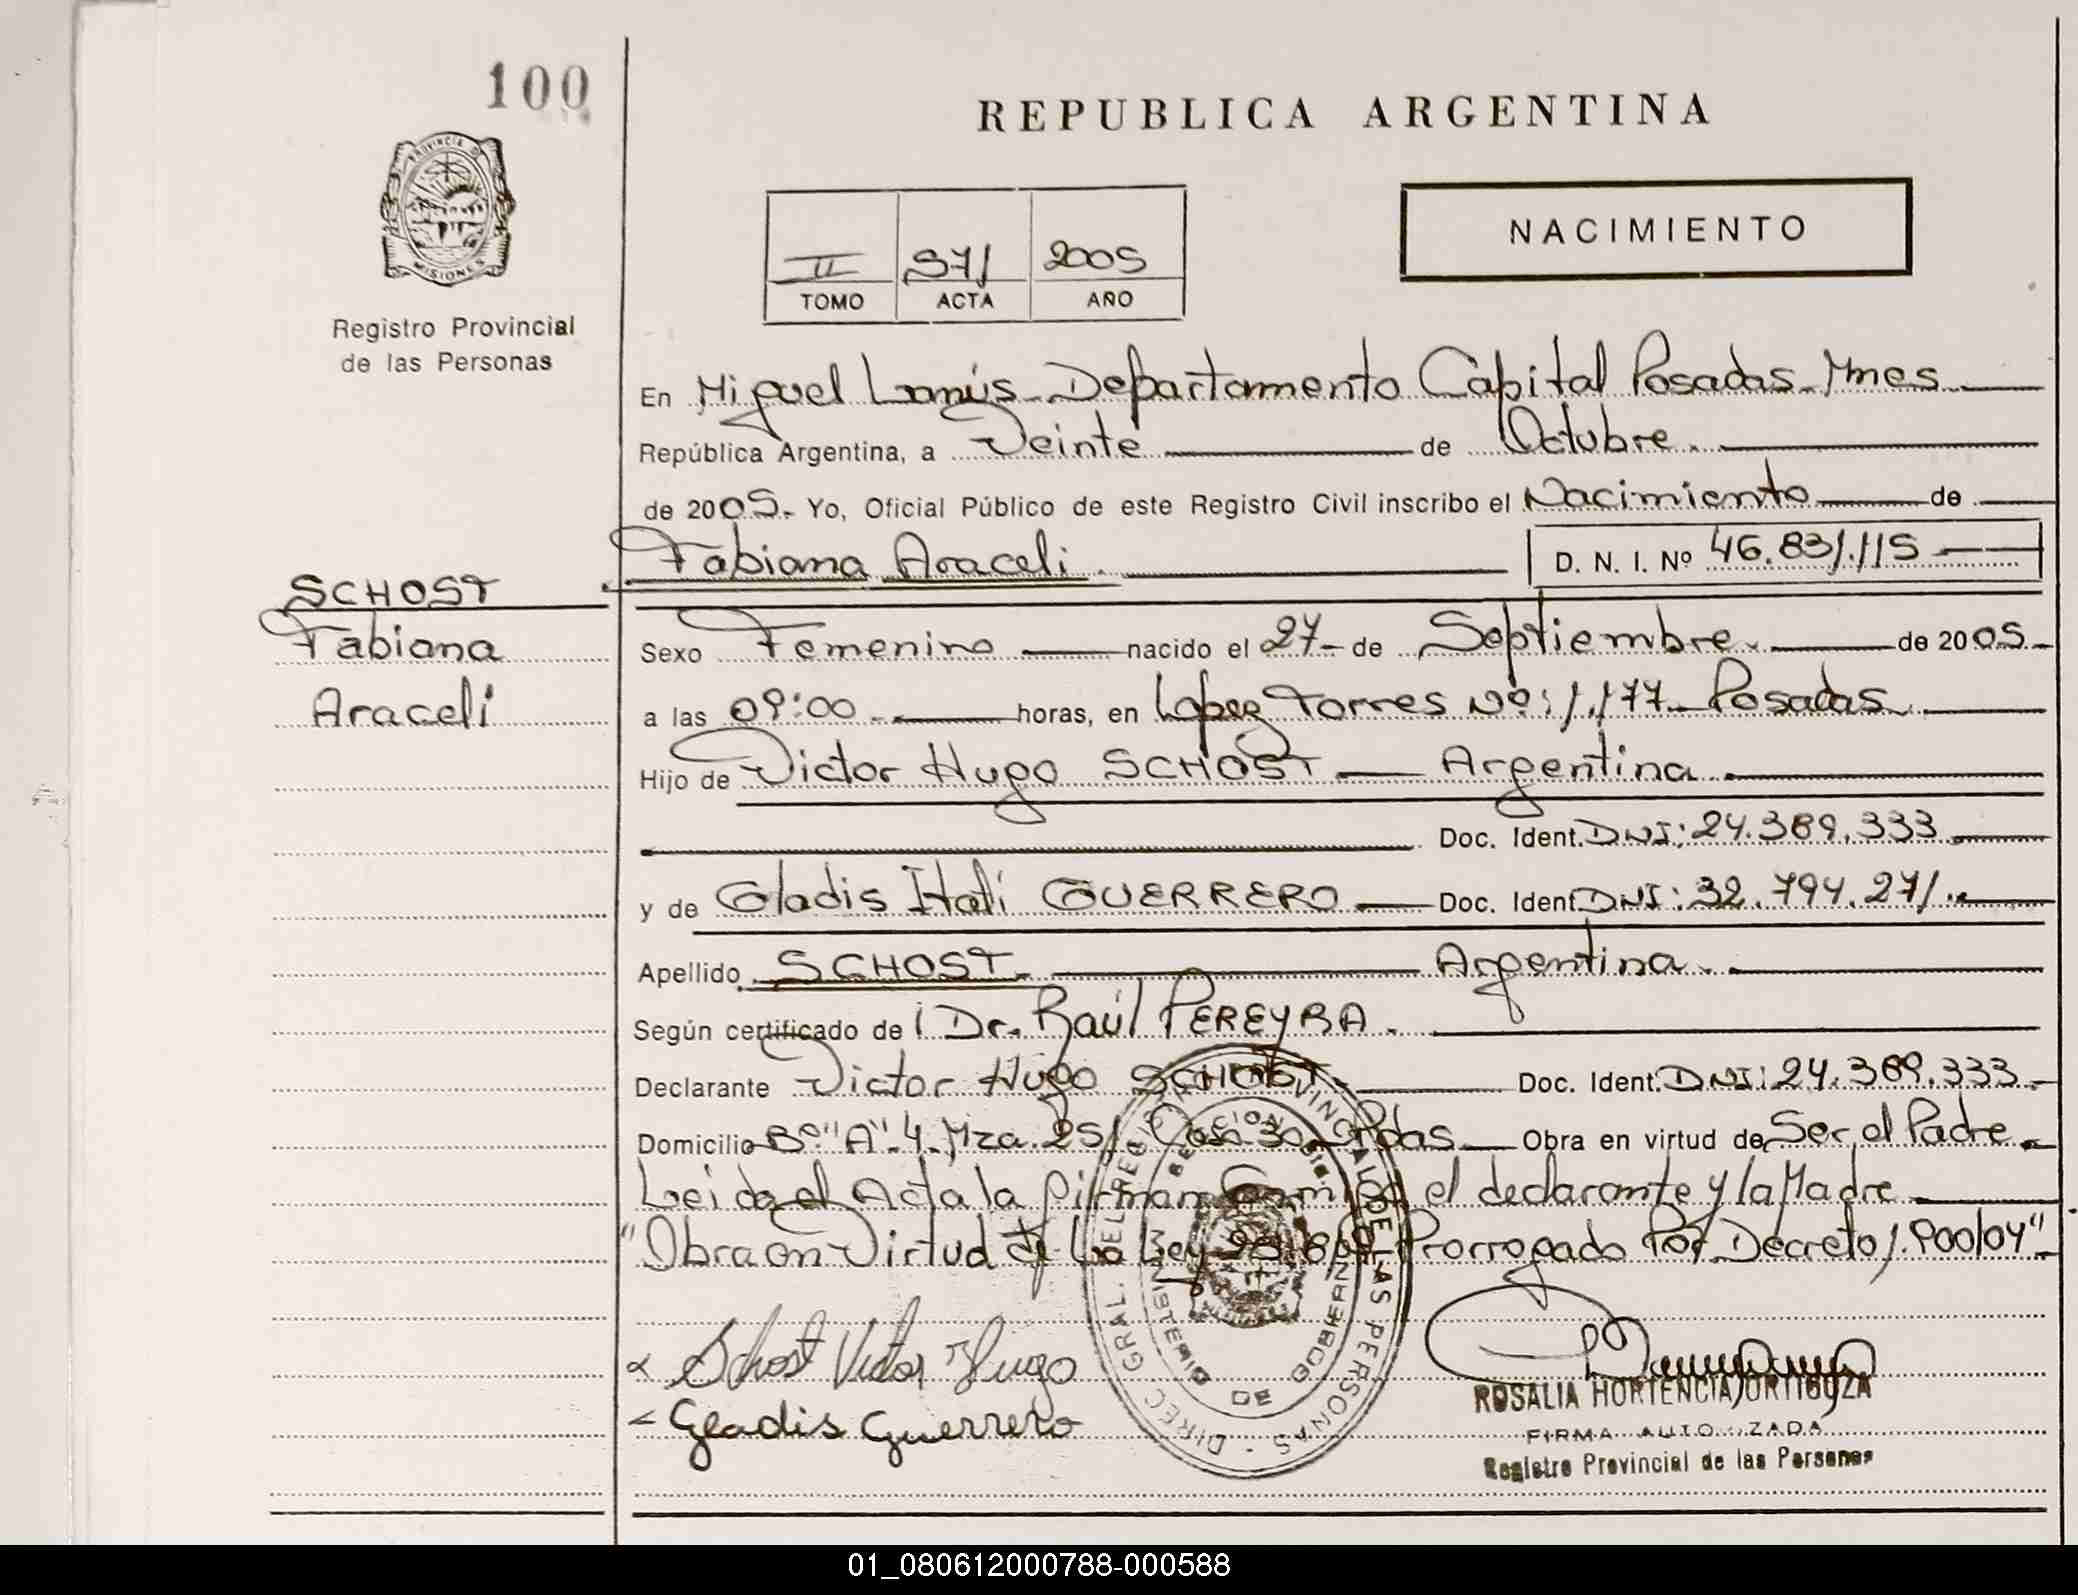 100
PROVINCIA DE
MISIONES
Registro Provincial
de las Personas
REPUBLICA ARGENTINA
NACIMIENTO
II 971 2005
TOMO ACTA AÑO
En Miguel Lanús - Departamento Capital Posadas - Mnes
República Argentina, a Veinte de Octubre
de 2005. Yo, Oficial Público de este Registro Civil inscribo el Nacimiento de
Fabiana Araceli. D. N. I. Nº 46.831.115
SCHOST
Fabiana
Araceli
Sexo Femenino nacido el 27 - de Septiembre de 2005
a las 09:00 horas, en Lopez Torres Nº: 1.177 - Posadas
Hijo de Victor Hugo SCHOST — Argentina
Doc. Ident. DNI: 24.389.333
y de Gladis Itati GUERRERO — Doc. Ident DNI: 32.794.271.
Apellido SCHOST Argentina.
Según certificado de Dr. Raúl PEREYRA.
Declarante Victor Hugo SCHOST Doc. Ident. DNI: 24.389.333
Domicilio Bº "A" 4 Mza. 251 Casa 30 - Pdas Obra en virtud de Ser el Padre
Leida el Acta la firman Conmigo el declarante y la Madre
"Obra en Virtud de La Ley Prorrogado Por Decreto 1.900/04"
Schost Victor Hugo
Gladis Guerrero
DIREC. GRAL. DEL REGISTRO PROVINCIAL DE LAS PERSONAS
MINISTERIO DE GOBIERNO
ROSALIA HORTENCIA ORTIGOZA
FIRMA AUTORIZADA
Registro Provincial de las Personas
01_080612000788-000588